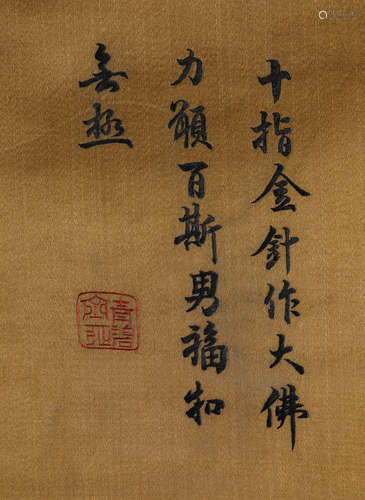 十指金針作大佛
力願百斯男福和
無極